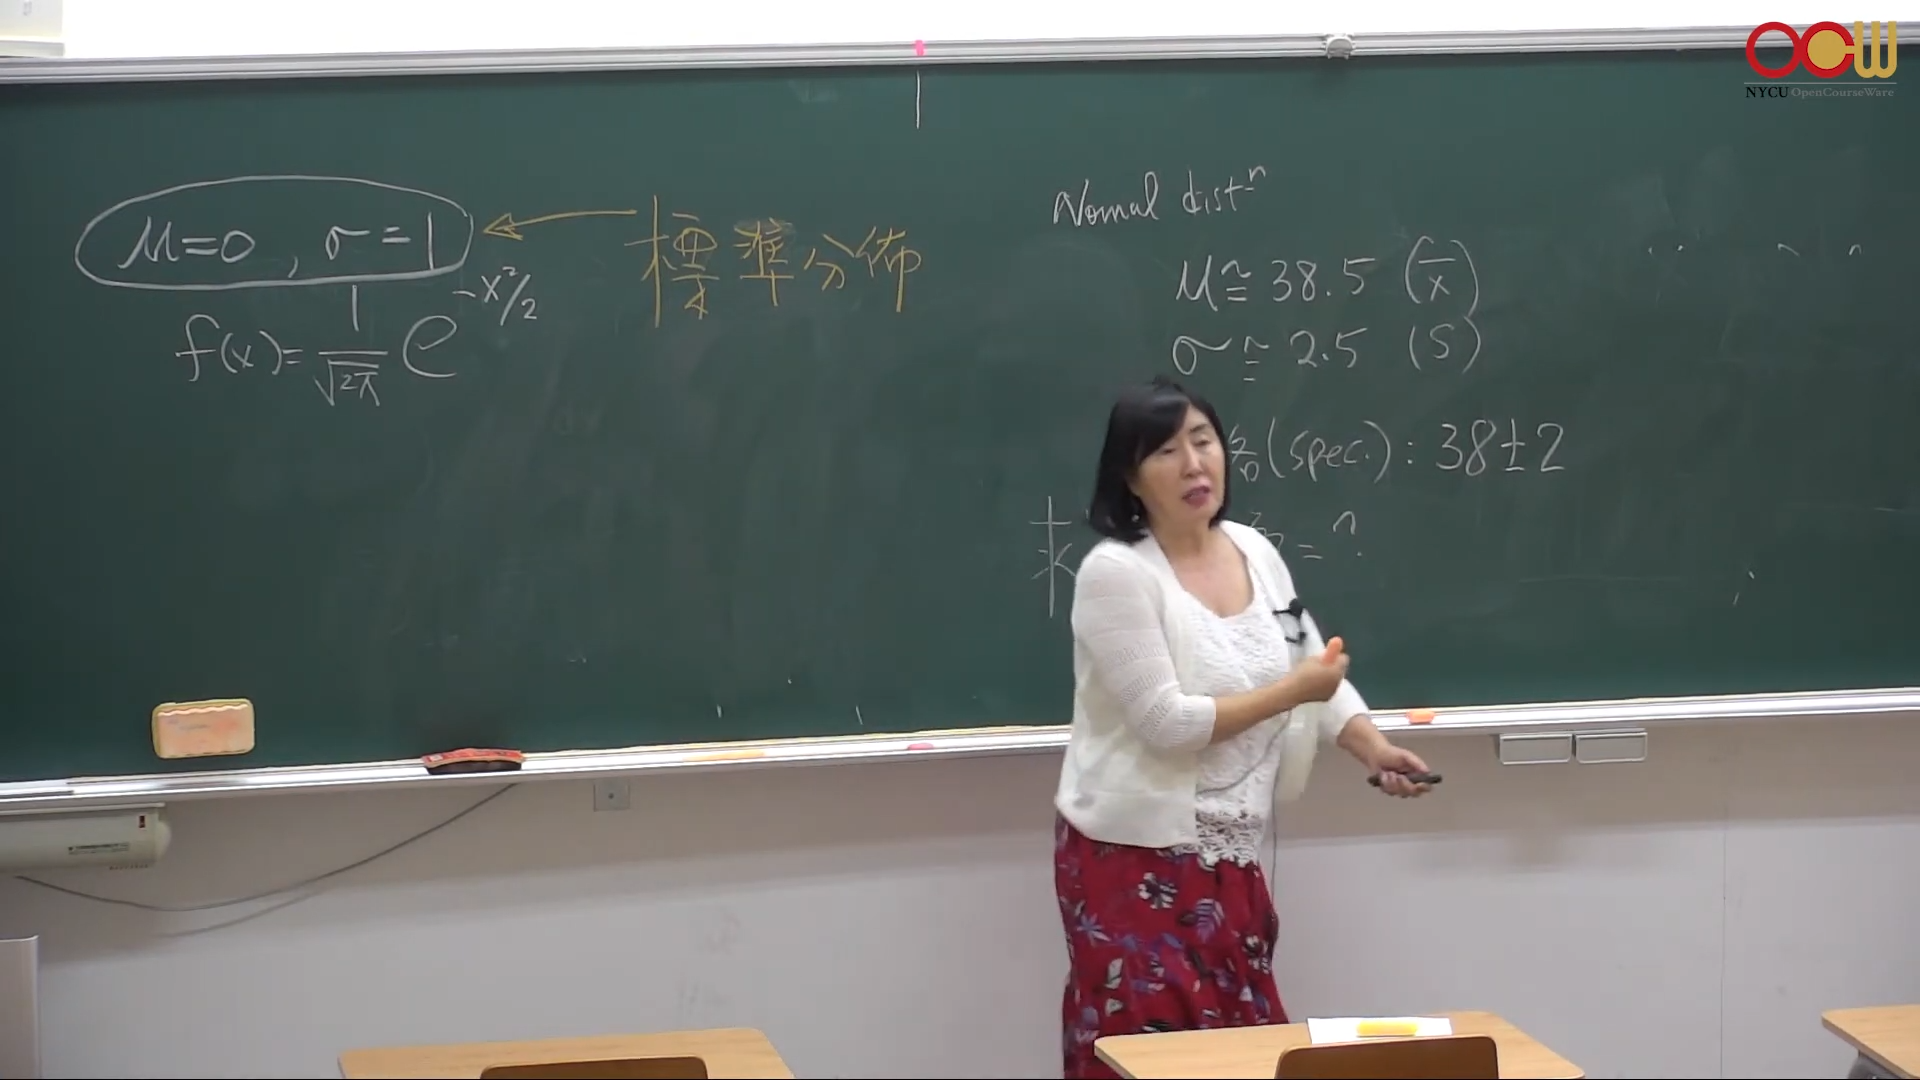 OCW
NYCU OpenCourseWare
μ=0, σ=1
標準分佈
f(x)=1/√2π e^-x²/2
Nomal dist^n
μ≅38.5 (x̄)
σ≅2.5 (S)
(spec.): 38±2
求
=?